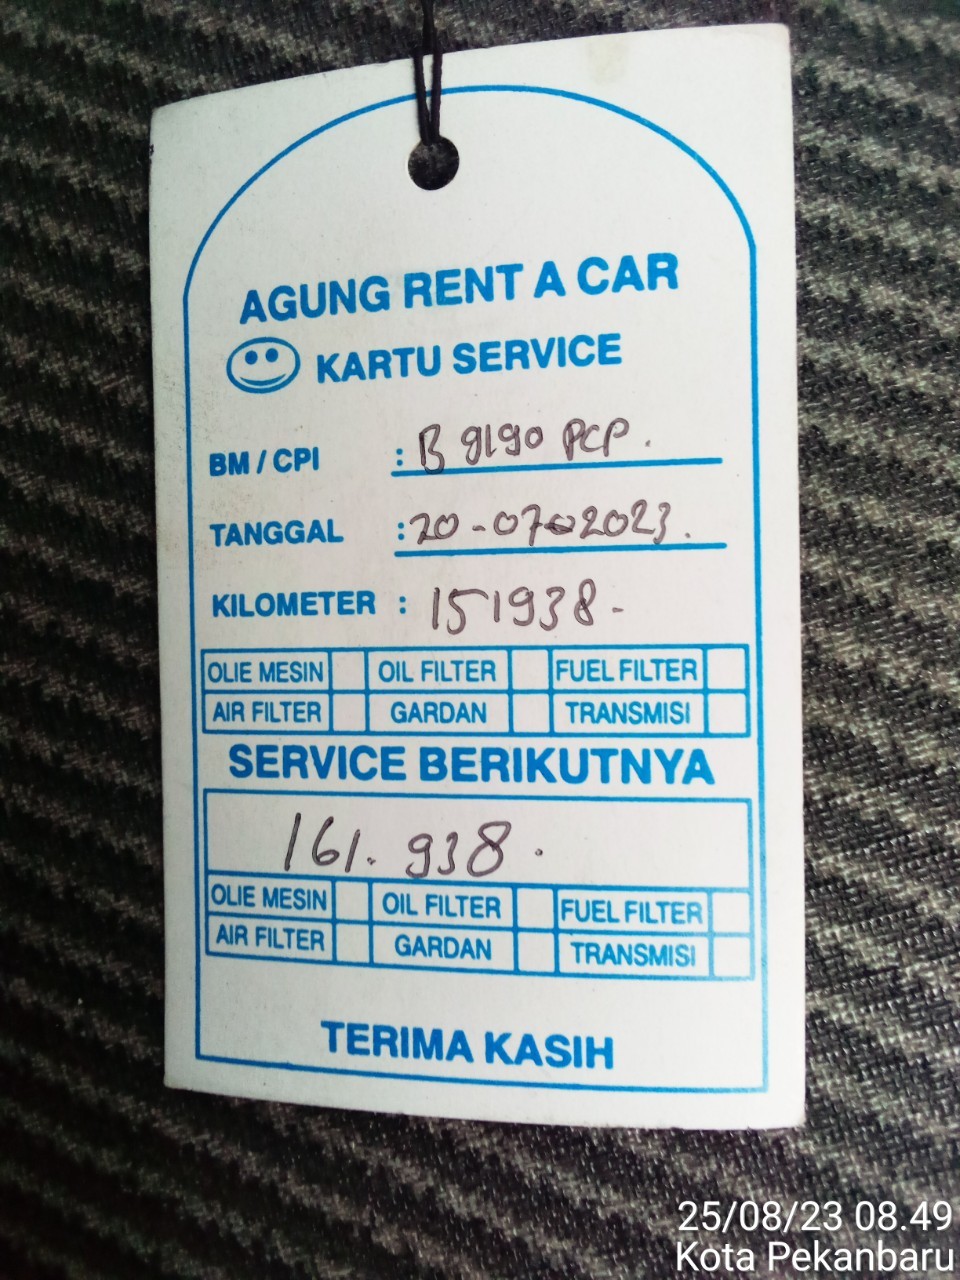 AGUNG RENT A CAR
KARTU SERVICE
BM / CPI : B 9190 PCP.
TANGGAL : 20-07-2023.
KILOMETER : 151938-
OLIE MESIN OIL FILTER FUEL FILTER
AIR FILTER GARDAN TRANSMISI
SERVICE BERIKUTNYA
161. 938.
OLIE MESIN OIL FILTER FUEL FILTER
AIR FILTER GARDAN TRANSMISI
TERIMA KASIH
25/08/23 08.49
Kota Pekanbaru